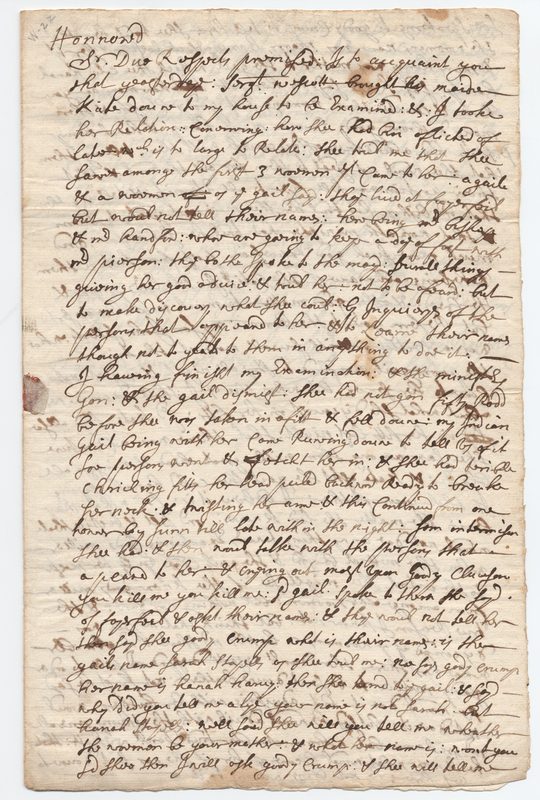 Honnored
Sr. Due Respects premised: Is to acquaint you
that yeasterdaye: Serjt. wescott brought his maide
Kate downe to my house to be Examined: & I tooke
her Relation: Conserning: how shee had bin aflicted of
late: wch is to large to Relate: shee tould me that shee
saw amongs the first 3 woemen yt Came to her: a gaile
& a woemen of ye gail said: thay lived at fayrfeild
but would not tell theire names: here being mr bishop
& mr handford: whoe are going to keep a day of fast with
mr pierson: thay bothe spoke to the maid: severall things
giveing her good advice: & tould her: not to be afraid: but
to make discovery what shee could: by Inquiery of the
persons that appeared to her & to learne theire names
though not to yeald to them in anything to doe it:
I haveing finisht my Examination: & the ministers
gon: & the gail dismist: shee had not gon fifty Rod
before shee was taken in a fitt & fell downe: my Indian
gail being with her Came Runing downe to tell of it
soe persons went & fetcht her in: & shee had terible
shricking fitts her head puled backwd Ready to breake
her neck: & twisting her arme & this Continued from one
hower by sunn till late within the night: som intermision
shee had: & then would talke with the persons that
apeard to her & Crying out most upon goody Clauson
you kill me you kill me: sd gail: spoke to them she said
of fayrfeild & askt theire names: & thay would not tell her
then said shee goody Crump what is their names: is the
gails name Sarah Staples as shee tould me: no says goody Crump
her name is hanah harvy: then shee turnd to ye gail: & said
why did you tell me a lye your name is not Sarah: but
hanah: well said shee will you tell me wheather
the woemen be your mother: & what her name is: wont you
sd shee then I will ask goody Crump: & she will tell me